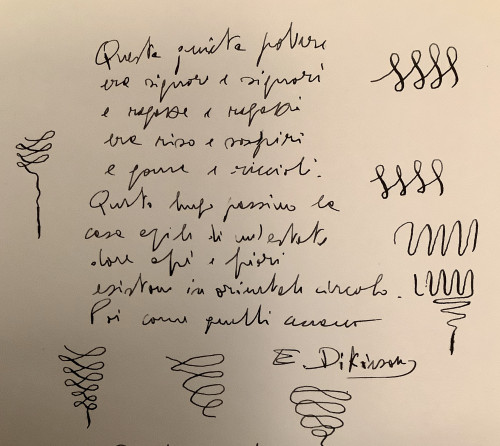 Questa quieta polvere
era signore e signori
e ragazze e ragazzi
era riso e sospiri
e gonne e riccioli.
Questo luogo passivo la
casa agile di un'estate
dove api e fiori
esistono in orientale circolo.
Poi come quelli
E. Dikinson